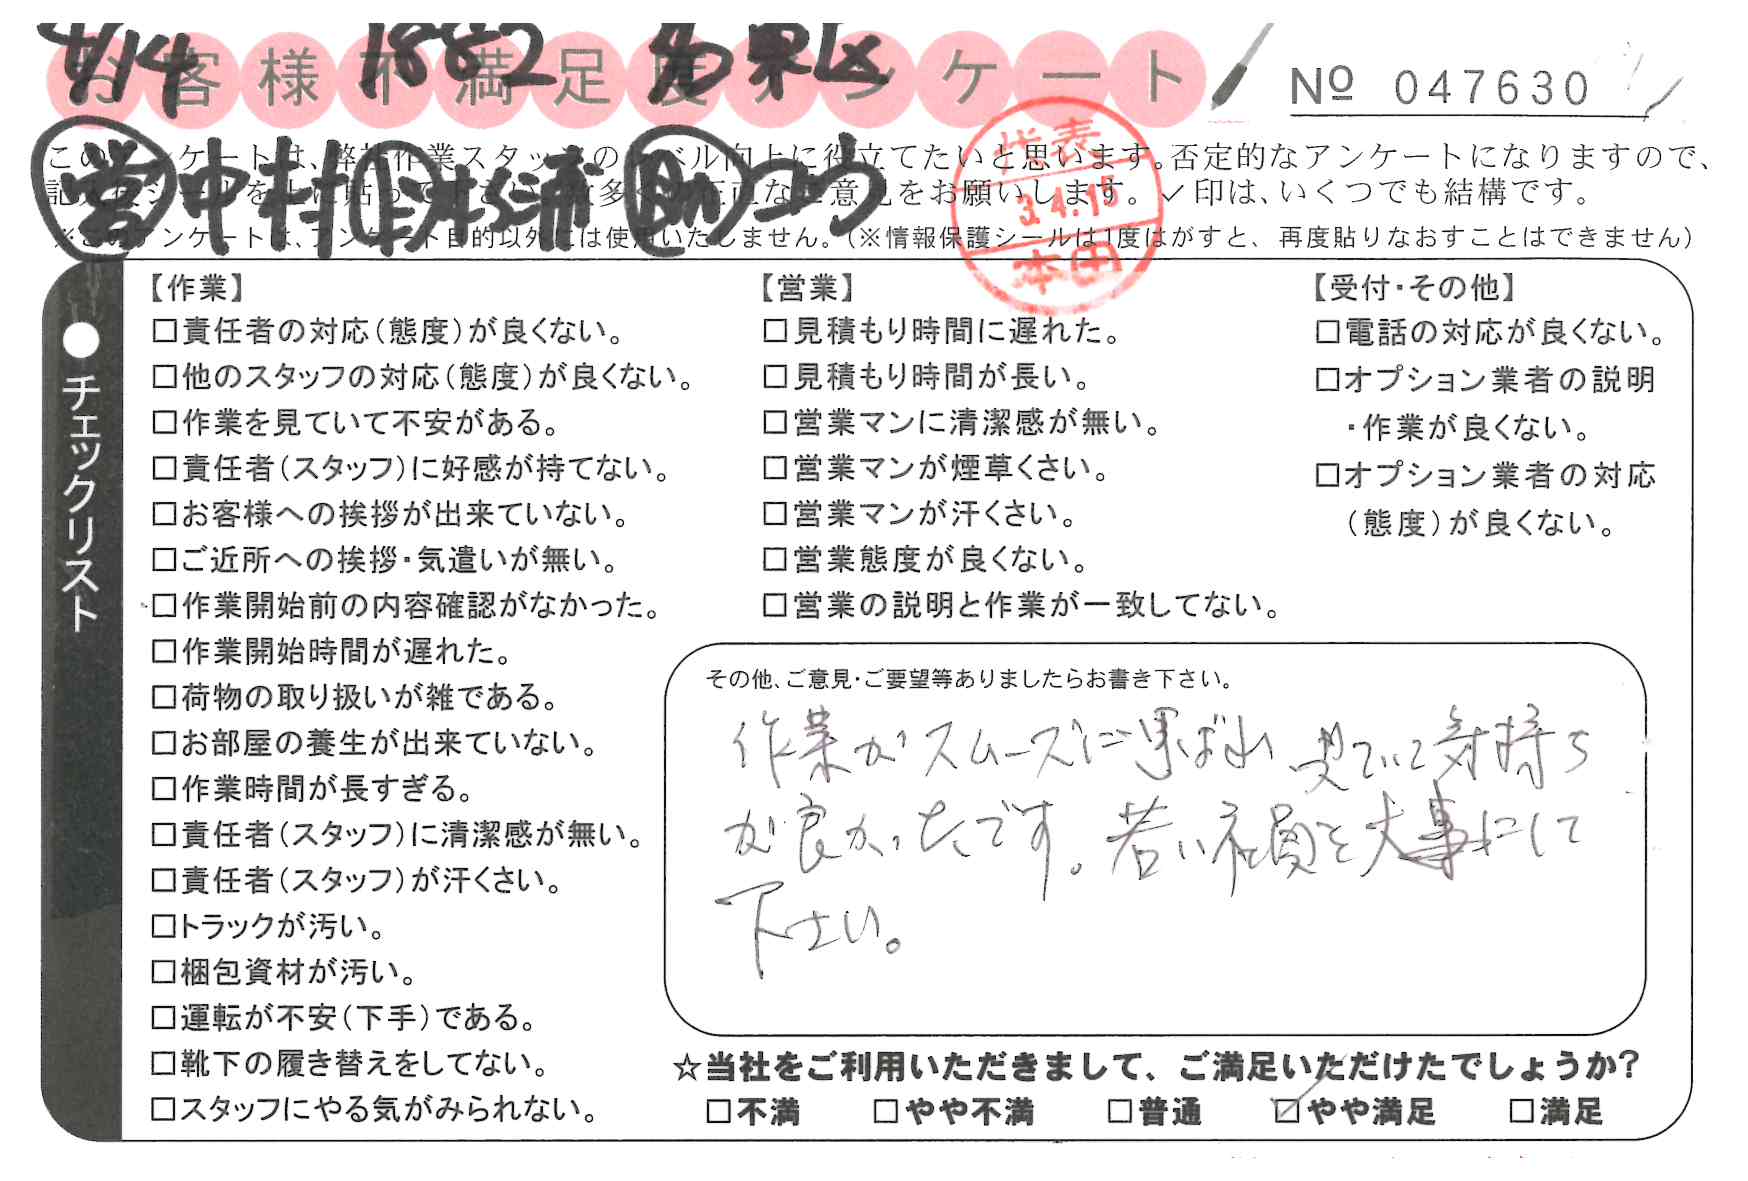 4/14 1882 名東区
お客様不満足度アンケート
№ 047630
営 中村 自 杉浦 助 コウ
このアンケートは、弊社作業スタッフのレベル向上に役立てたいと思います。否定的なアンケートになりますので、
記入後シールを上に貼って下さい。数多くの正直なご意見をお願いします。✓印は、いくつでも結構です。
※このアンケートは、アンケート目的以外には使用いたしません。(※情報保護シールは1度はがすと、再度貼りなおすことはできません)
代表
3.4.15
本田
●チェックリスト
【作業】
□責任者の対応(態度)が良くない。
□他のスタッフの対応(態度)が良くない。
□作業を見ていて不安がある。
□責任者(スタッフ)に好感が持てない。
□お客様への挨拶が出来ていない。
□ご近所への挨拶・気遣いが無い。
□作業開始前の内容確認がなかった。
□作業開始時間が遅れた。
□荷物の取り扱いが雑である。
□お部屋の養生が出来ていない。
□作業時間が長すぎる。
□責任者(スタッフ)に清潔感が無い。
□責任者(スタッフ)が汗くさい。
□トラックが汚い。
□梱包資材が汚い。
□運転が不安(下手)である。
□靴下の履き替えをしてない。
□スタッフにやる気がみられない。
【営業】
□見積もり時間に遅れた。
□見積もり時間が長い。
□営業マンに清潔感が無い。
□営業マンが煙草くさい。
□営業マンが汗くさい。
□営業態度が良くない。
□営業の説明と作業が一致してない。
【受付・その他】
□電話の対応が良くない。
□オプション業者の説明
・作業が良くない。
□オプション業者の対応
(態度)が良くない。
その他、ご意見・ご要望等ありましたらお書き下さい。
作業がスムーズに運ばれ 見ていて気持ち
が良かったです。若い社員を大事にして
下さい。
☆当社をご利用いただきまして、ご満足いただけたでしょうか?
□不満 □やや不満 □普通 ☑やや満足 □満足